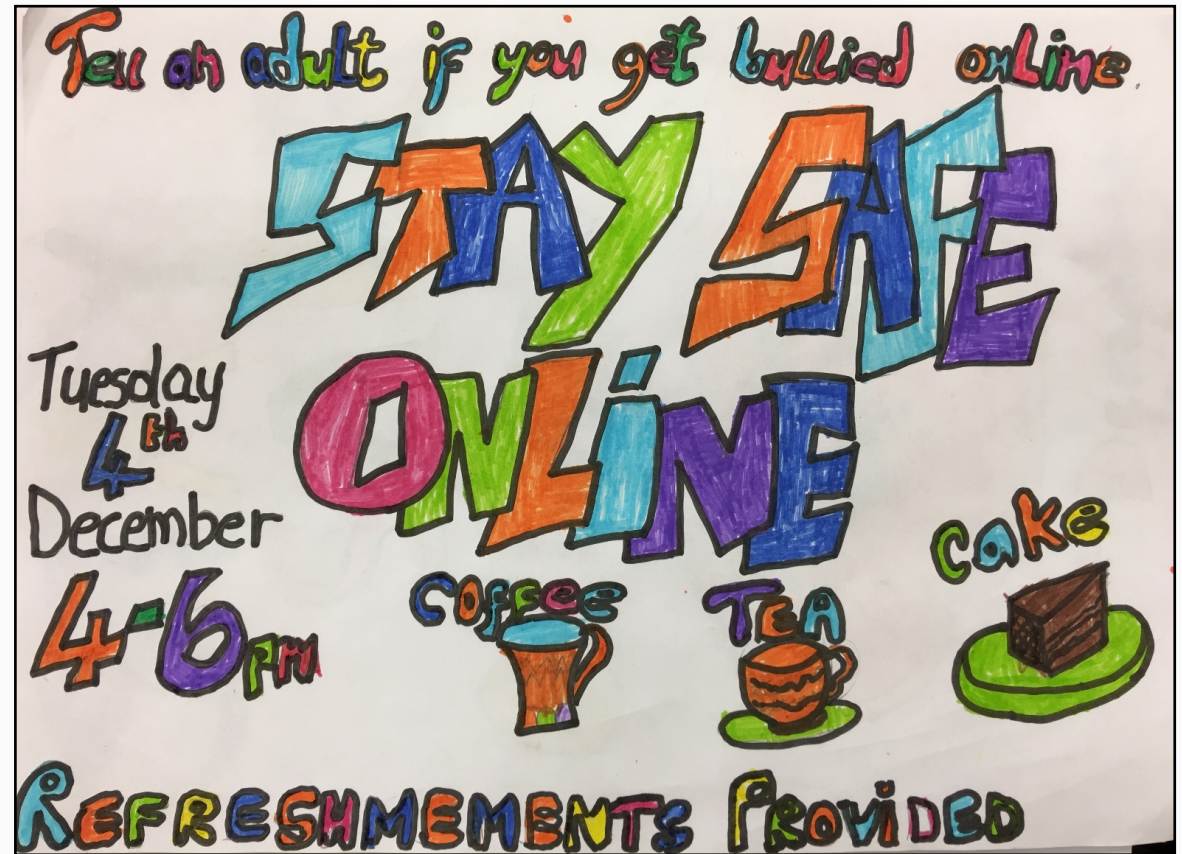 Tell an adult if you get bullied online
STAY SAFE
ONLiNE
Tuesday
4th
December
4-6pm
Coffee
TEA
cake
REFRESHMEMENTS PROViDED